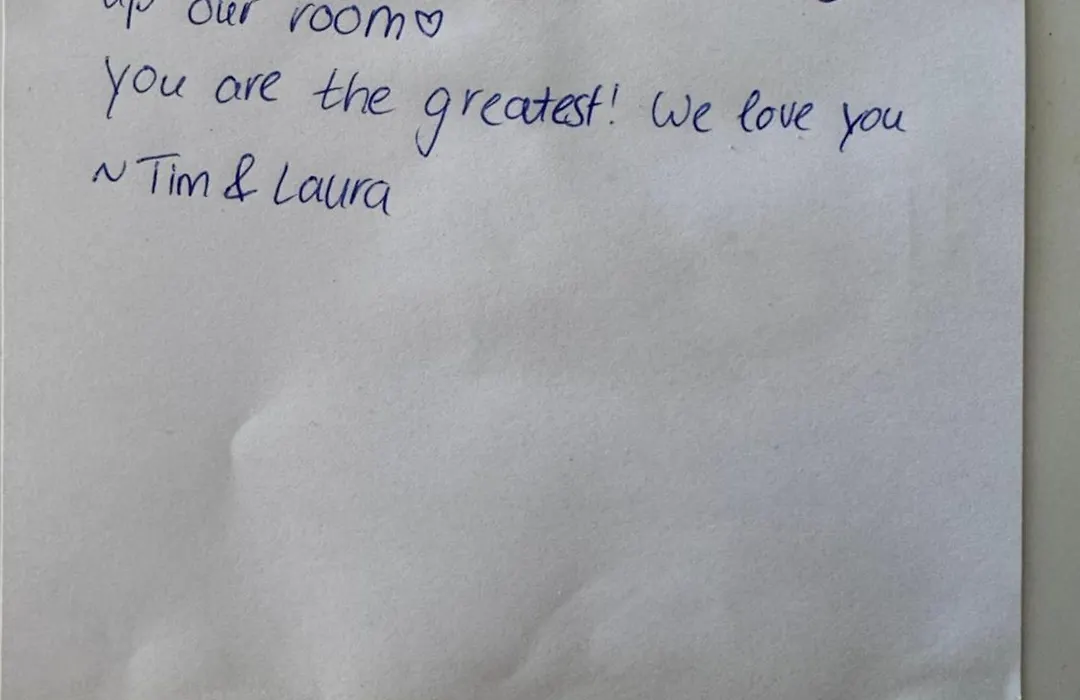 up our room♡
You are the greatest! We love you
~Tim & Laura